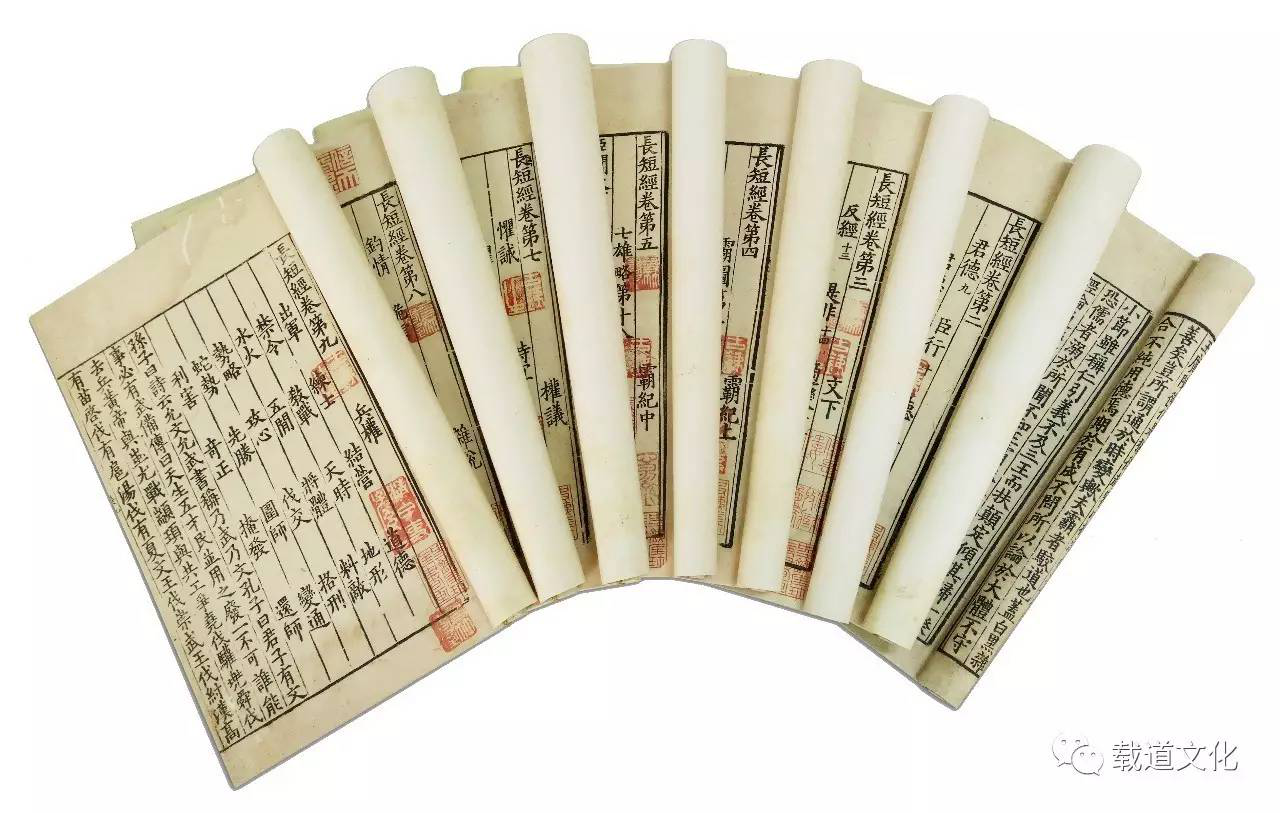 善矣豈所謂通於時變歟夫霸者駮道也蓋白黑雜
合不純用德焉期於有成不問所以論於大體不守
小節雖稱仁引義不及三王而扶顛定傾其歸一揆
恐儒者溺於所聞不知王
經論
長短經卷第二
君德九 臣行
長短經卷第三
反經十三 是非十四 文下
長短經卷第四
霸圖 霸紀上
長短經卷第五
七雄略第十八 霸紀中
長短經卷第七
懼誡 時宜 權議
長短經卷第八
釣情 雜說
長短經卷第九 兵權
出軍 練士 結營 道德
禁令 教戰 天時 地形
水火 五間 將體 料敵
勢略 攻心 伐交 格形
蛇勢 先勝 圍師 變通
利害 奇正 掩發 還師
孫子曰詩云允文允武書稱乃武乃文孔子曰君子有文
事必有武備傳曰天生五才民並用之發一不可誰能
去兵黃帝與蚩尤戰顓頊與共工爭堯伐驩兜舜伐
有苗啓伐有扈湯伐有夏文王伐崇武王伐紂漢高
载道文化